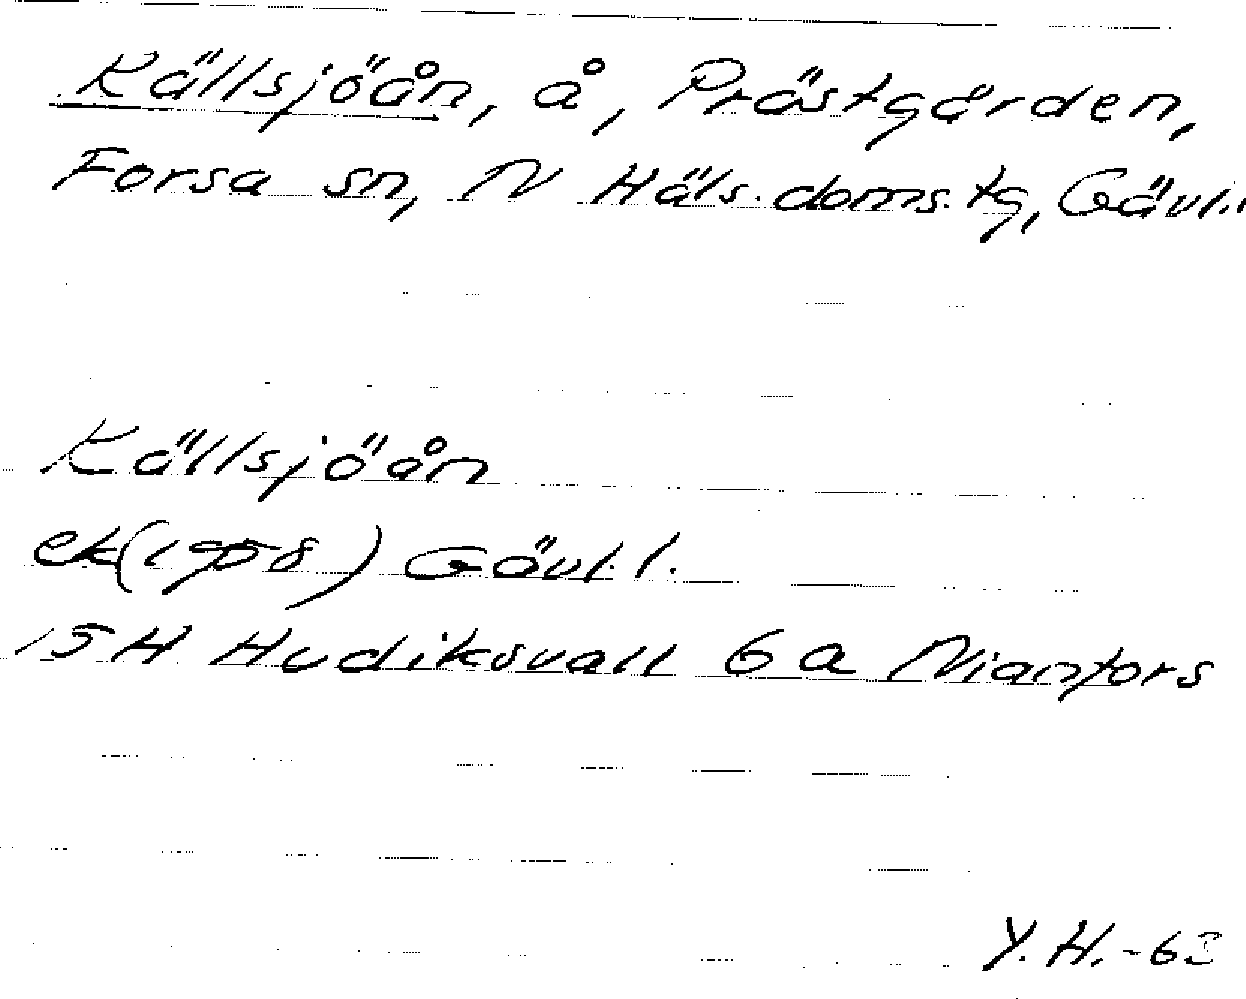 Källsjöån, å, Prästgården,
Forsa sn, N Häls. doms. tg, Gävl.l
Källsjöån
ek(1958) Gävl.l.
15H Hudiksvall 6a Nianfors
Y.H.-63